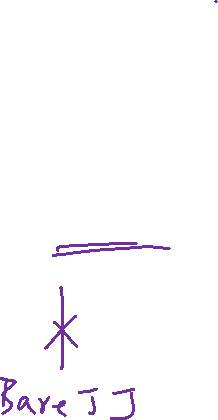 Bare JJ